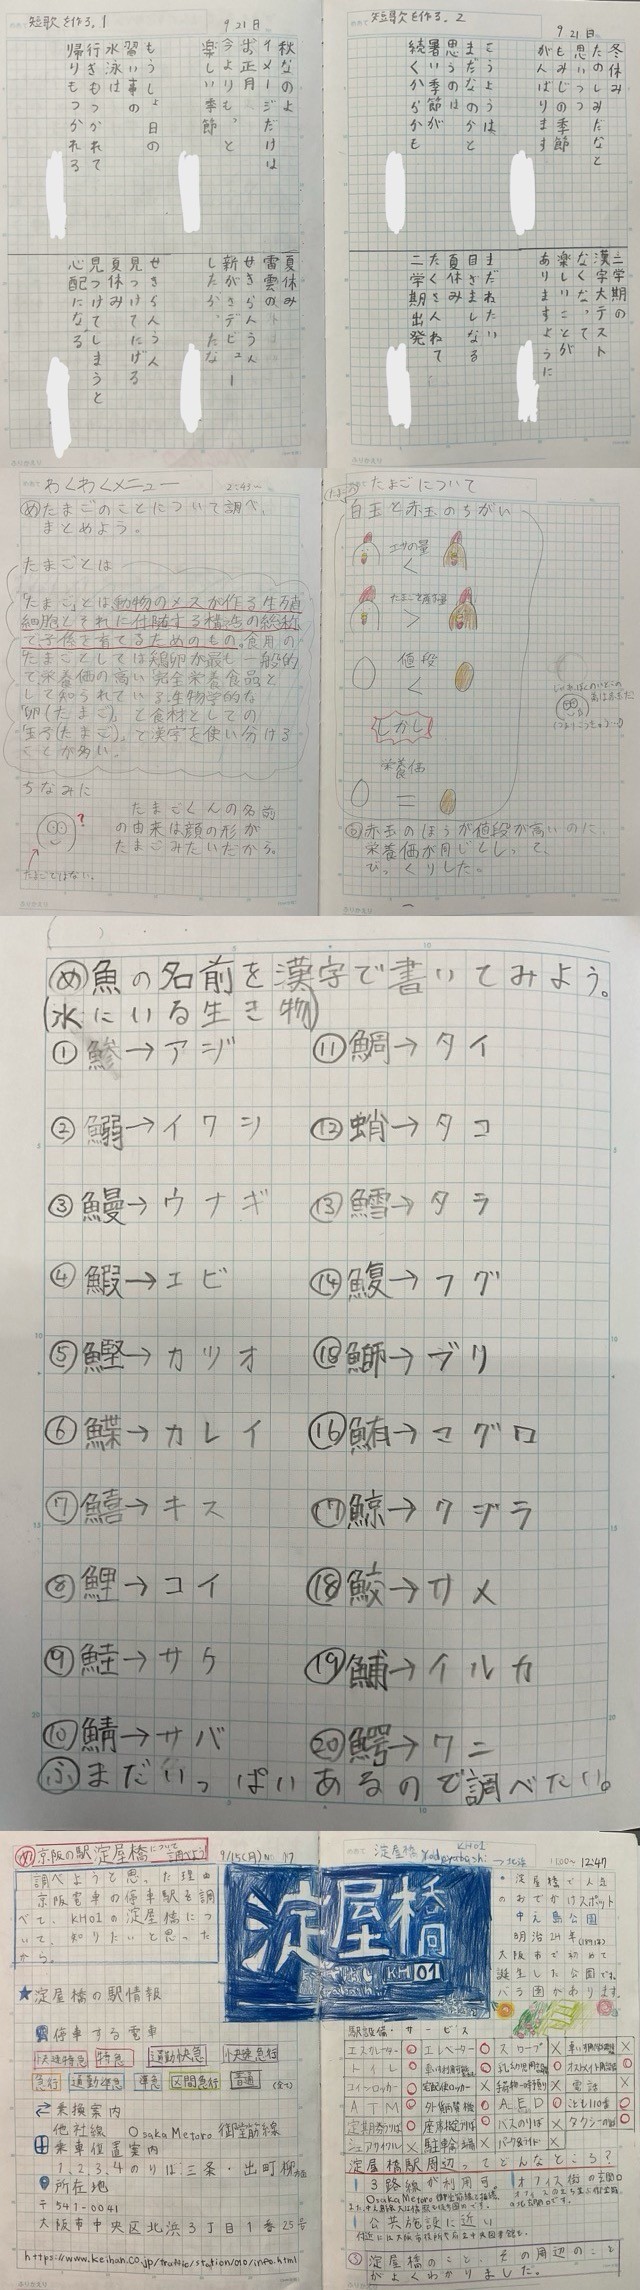 短歌を作る。1
9 21日
秋なのよ
イメージだけは
お正月
今よりも、と
楽しい季節
もうしょ日の
習い事の
水泳は
行きもつかれて
帰りもつかれる
夏休み
雷雲の
せきらんうん
新がきデビュー
したか、たな
せきらんうん
見つけてにげる
夏休み
見つけてしまうと
心配になる
短歌を作る。2
9 21日
冬休み
たのしみだなと
思いつつ
もみじの季節
がんばります
こうようは
まだなのかと
思うのは
暑い季節が
続くからかも
二学期の
漢字大テスト
なくなって
楽しいことが
ありますように
まだねたい
目ざましなる
夏休み
たくさんねて
二学期出発
わくわくメニュー
2:43〜
め たまごのことについて調べ、
まとめよう。
たまごとは
「たまご」とは動物のメスが作る生殖
細胞とそれに付随する構造の総称
で子孫を育てるためのもの。食用の
たまごとしては鶏卵が最も一般的
で栄養価の高い完全栄養食品と
して知られている。生物学的な
「卵(たまご)」と食材としての
「玉子(たまご)」で漢字を使い分ける
ことが多い。
ちなみに
たまごくんの名前
の由来は顔の形が
たまごみたいだから。
?
たまごではない。
たまごについて
白玉と赤玉のちがい
エサの量
<
たまごを産む量
>
値段
<
しかし
栄養価
=
赤玉のほうが値段が高いのに、
栄養価が同じとしって、
びっくりした。
め 魚の名前を漢字で書いてみよう。
(水にいる生き物)
① 鯵→アジ
② 鰯→イワシ
③ 鰻→ウナギ
④ 鰕→エビ
⑤ 鰹→カツオ
⑥ 鰈→カレイ
⑦ 鱚→キス
⑧ 鯉→コイ
⑨ 鮭→サケ
⑩ 鯖→サバ
⑪ 鯛→タイ
⑫ 蛸→タコ
⑬ 鱈→タラ
⑭ 鰒→フグ
⑮ 鰤→ブリ
⑯ 鮪→マグロ
⑰ 鯨→クジラ
⑱ 鮫→サメ
⑲ 鯆→イルカ
⑳ 鰐→ワニ
ふ まだいっぱいあるので調べたい。
め 京阪の駅淀屋橋について調べよう
9/15(月) No.17
調べようと思った理由
京阪電車の停車駅を調
べて、KH01の淀屋橋につ
いて、知りたいと思った
から。
★淀屋橋の駅情報
停車する電車
快速特急 特急 通勤快急 快速急行
急行 通勤準急 準急 区間急行 普通 (全て)
乗換案内
他社線 Osaka Metoro 御堂筋線
乗車位置案内
1、2、3、4のりば 三条・出町柳方面
所在地
〒541-0041
大阪市中央区北浜3丁目1番25号
https://www.keihan.co.jp/traffic/station/010/info.html
淀屋橋 KH01
Yodoyabashi →北浜 11:00〜12:47
淀屋橋
KH 01
・淀屋橋で人気
のおでかけスポット
中之島公園
明治24年(1891年)
大阪市で初めて
誕生した公園です。
バラ園があります。
駅設備・サービス
エスカレーター ○ エレベーター ○ スロープ ×
トイレ ○
コインロッカー ○ 宅配便ロッカー × 手荷物一時預り × 電話 ×
ATM ○ 外貨両替機 ○ AED ○ こども110番 ○
定期券うりば ○ 座席指定うりば ○ バスのりば × タクシーのりば ○
シェアサイクル × 駐輪場 × パーク&ライド ×
淀屋橋駅周辺ってどんなところ?
3路線が利用可。
オフィス街の玄関口
公共施設に近い
淀屋橋のこと、その周辺のこと
がよくわかりました。